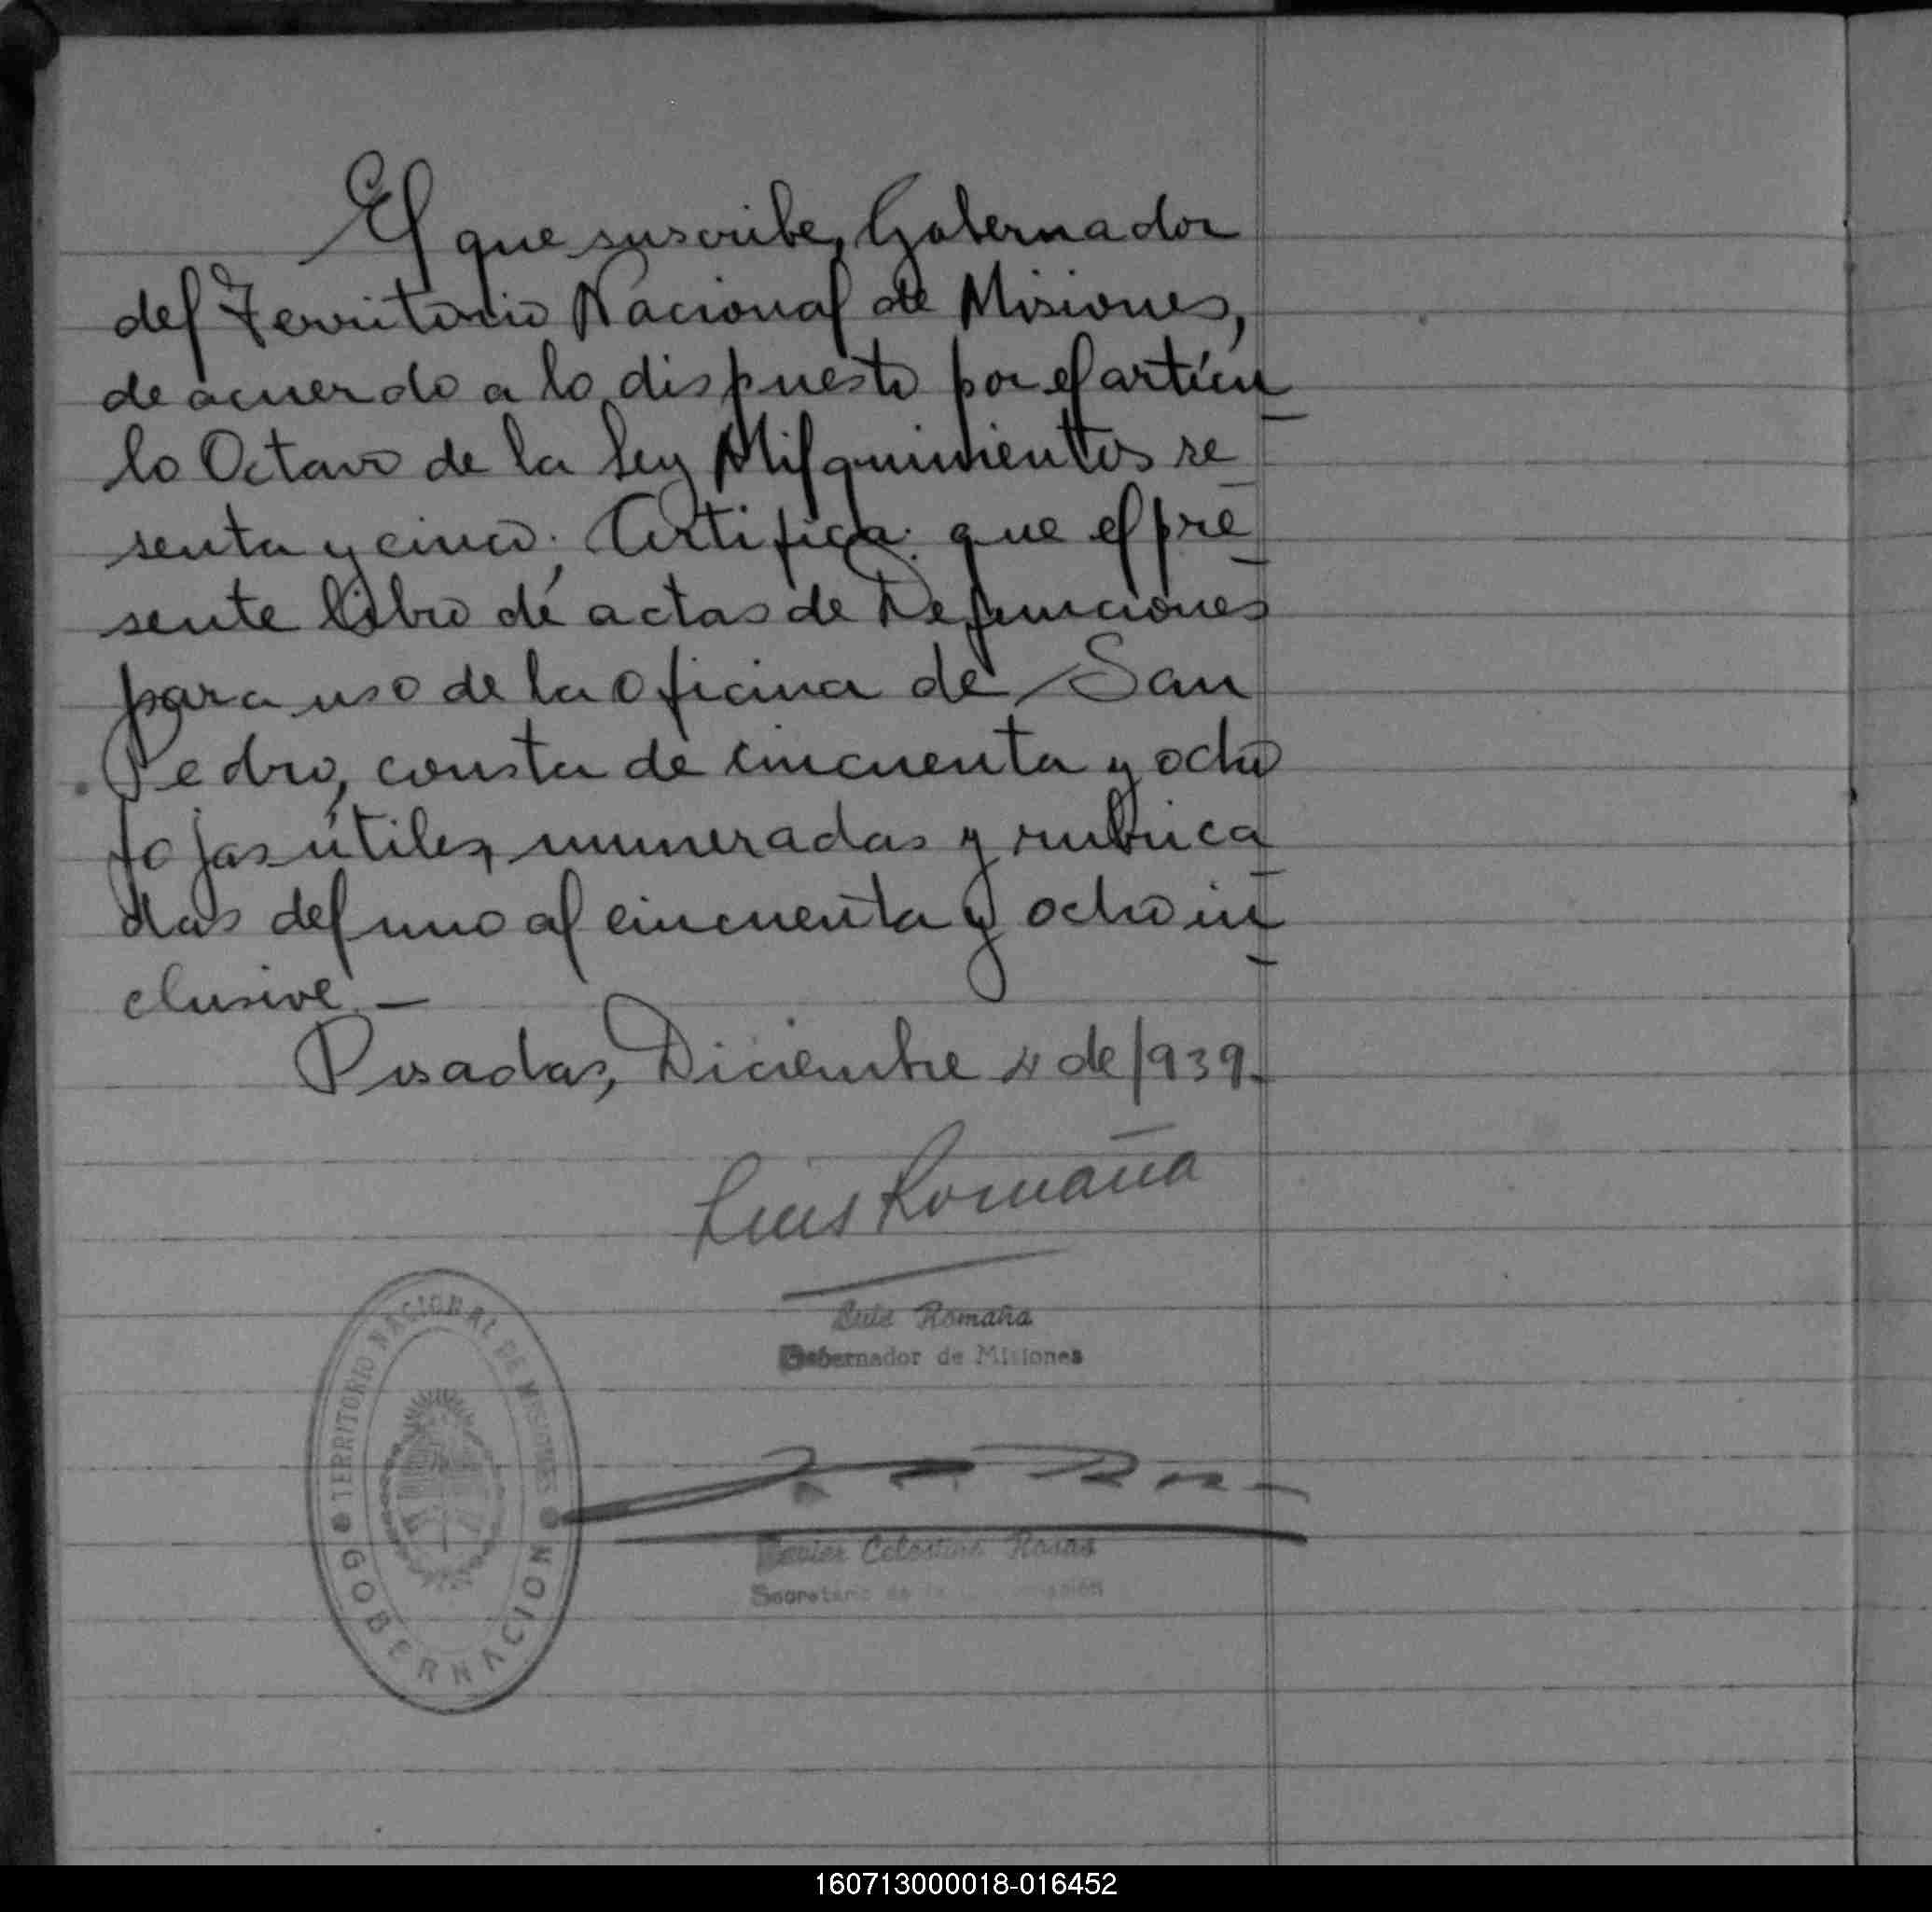 El que suscribe, Gobernador
del Territorio Nacional de Misiones,
de acuerdo a lo dispuesto por el artícu
lo Octavo de la Ley Mil quinientos se
senta y cinco. Certifica: que el pre
sente libro de actas de Defunciones
para uso de la oficina de San
Pedro, consta de cincuenta y ocho
fojas útiles, numeradas y rubrica
das del uno al cincuenta y ocho in
clusive.—
Posadas, Diciembre 4 de 1939.
Luis Romaña
Luis Romaña
Gobernador de Misiones
TERRITORIO NACIONAL DE MISIONES
GOBERNACION
Javier Celestino Rosas
Secretario de la
160713000018-016452